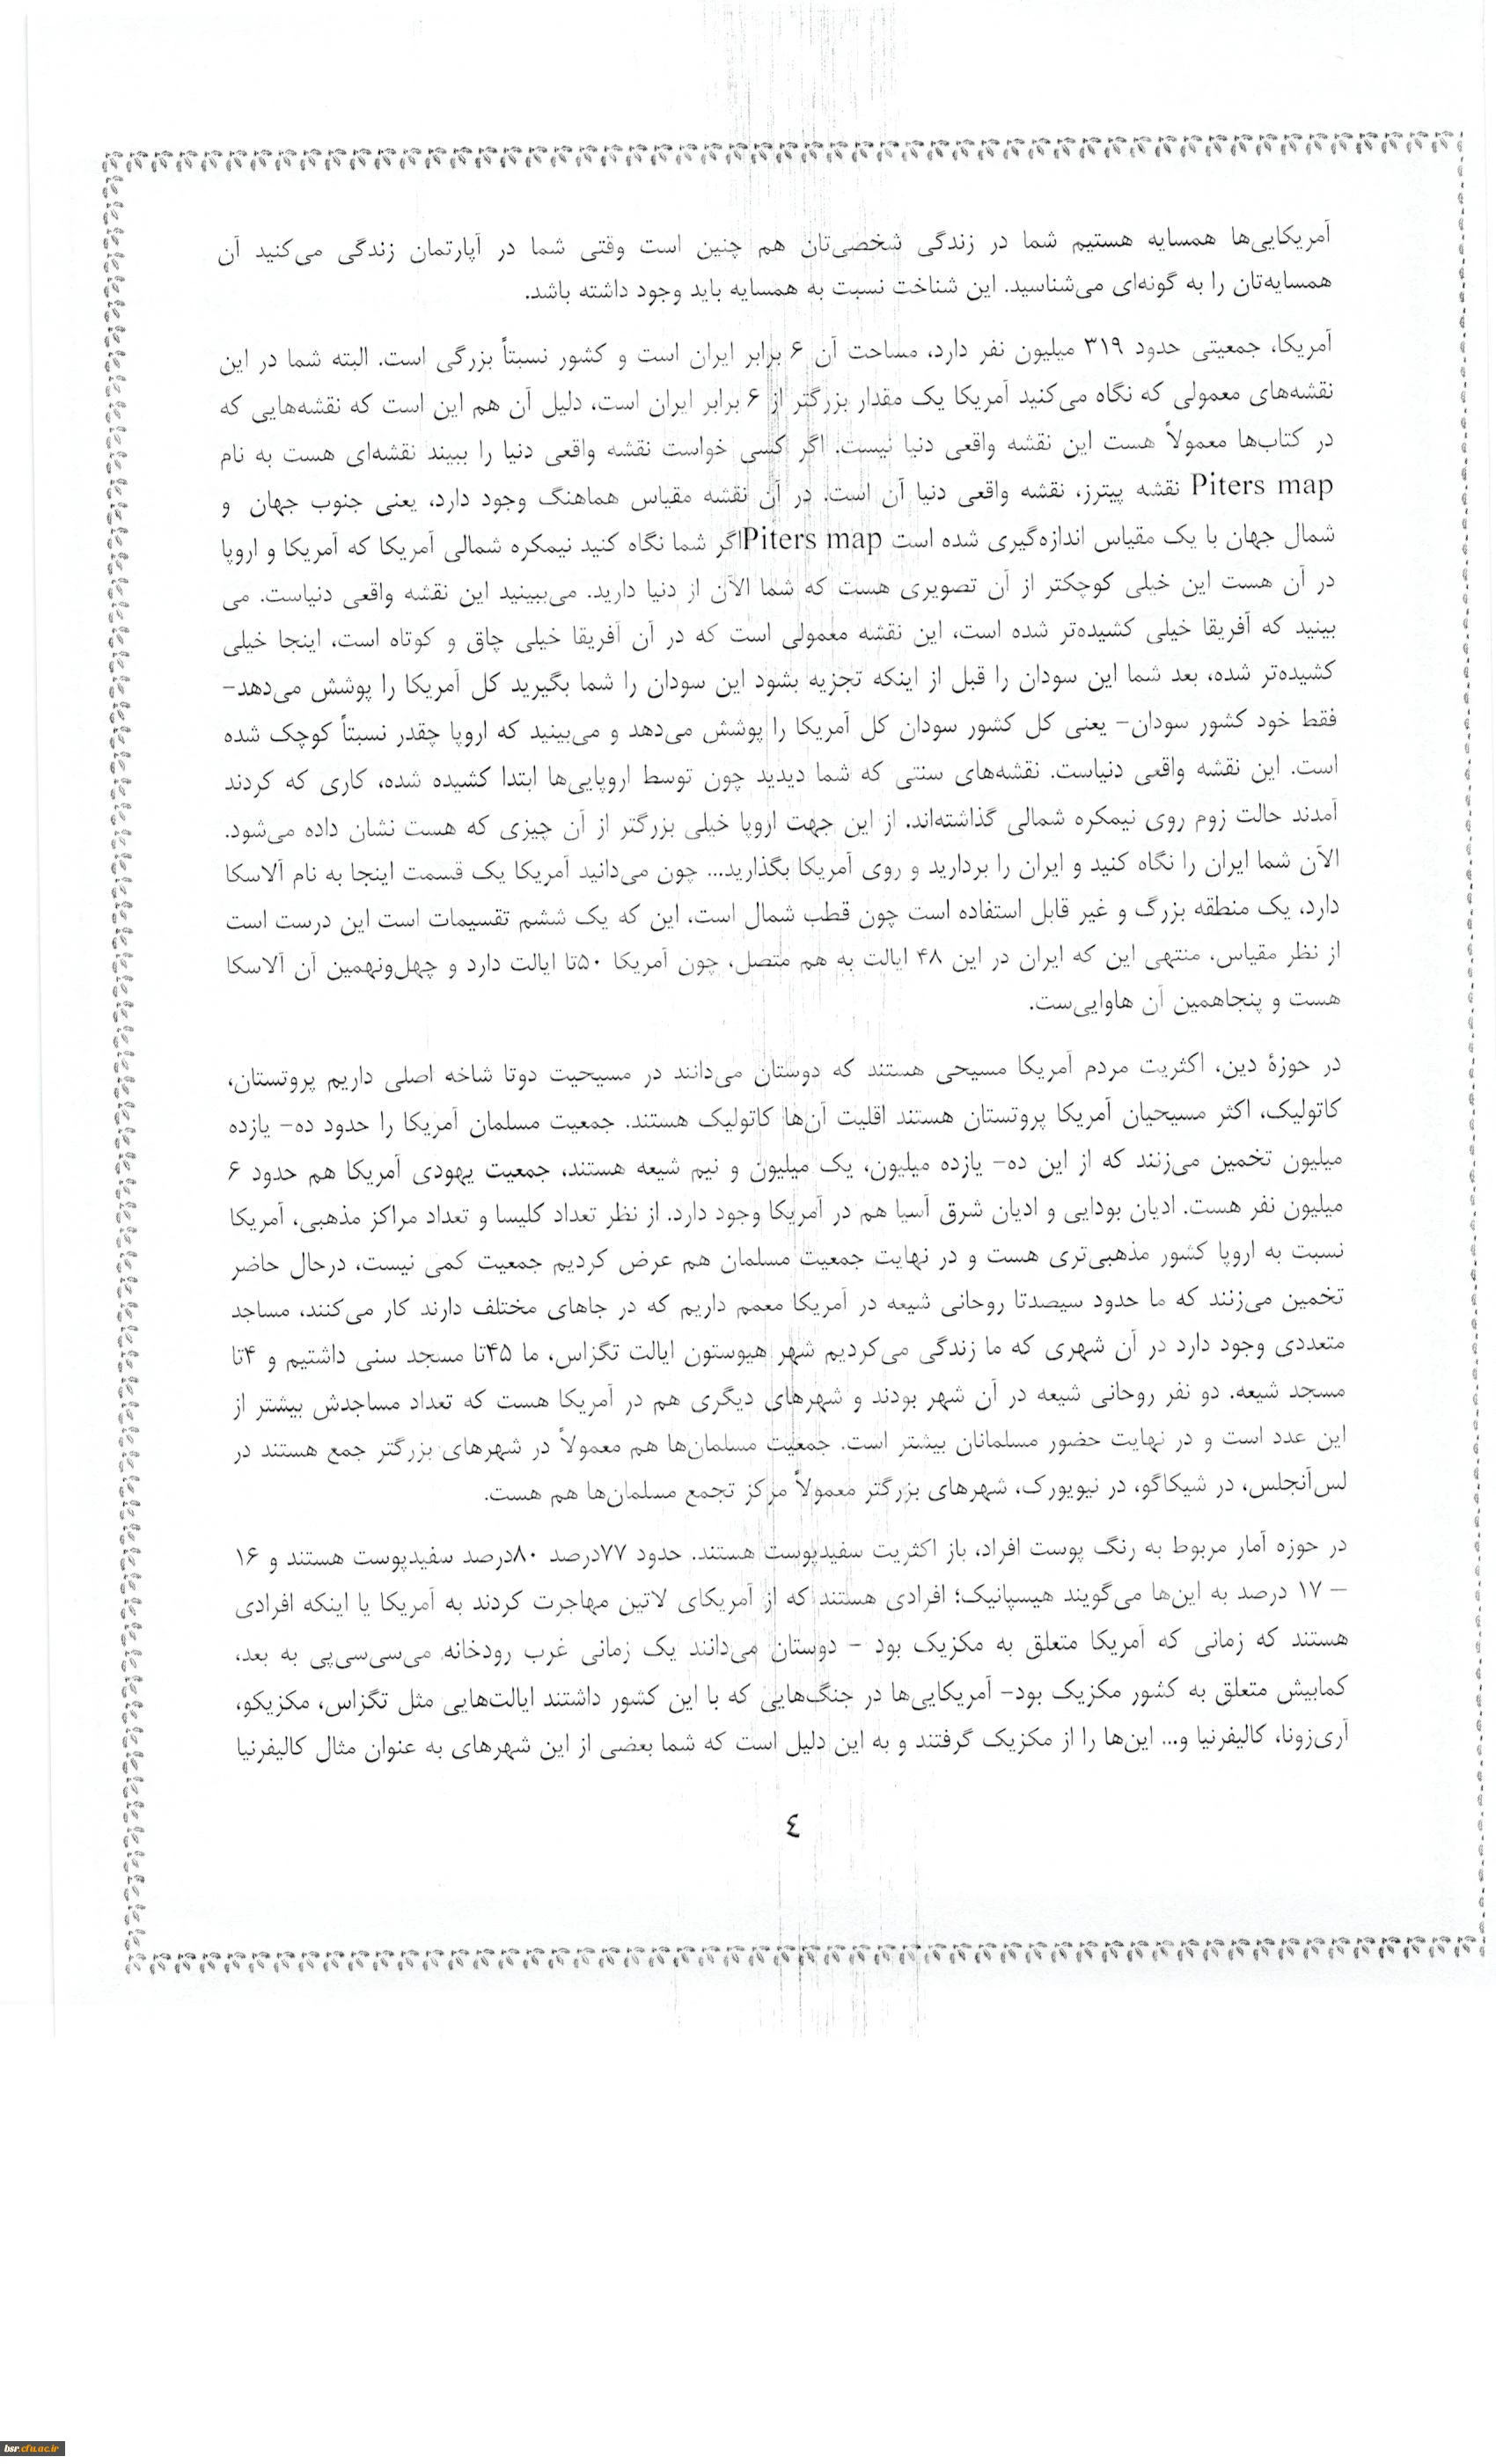 آمریکایی‌ها همسایه هستیم شما در زندگی شخصی‌تان هم چنین است وقتی شما در آپارتمان زندگی می‌کنید آن
همسایه‌تان را به گونه‌ای می‌شناسید. این شناخت نسبت به همسایه باید وجود داشته باشد.
آمریکا، جمعیتی حدود ۳۱۹ میلیون نفر دارد، مساحت آن ۶ برابر ایران است و کشور نسبتاً بزرگی است. البته شما در این
نقشه‌های معمولی که نگاه می‌کنید آمریکا یک مقدار بزرگتر از ۶ برابر ایران است، دلیل آن هم این است که نقشه‌هایی که
در کتاب‌ها معمولاً هست این نقشه واقعی دنیا نیست. اگر کسی خواست نقشه واقعی دنیا را ببیند نقشه‌ای هست به نام
Piters map نقشه پیترز، نقشه واقعی دنیا آن است. در آن نقشه مقیاس هماهنگ وجود دارد، یعنی جنوب جهان و
شمال جهان با یک مقیاس اندازه‌گیری شده است Piters mapاگر شما نگاه کنید نیمکره شمالی آمریکا که آمریکا و اروپا
در آن هست این خیلی کوچکتر از آن تصویری هست که شما الآن از دنیا دارید. می‌ببینید این نقشه واقعی دنیاست. می
بینید که آفریقا خیلی کشیده‌تر شده است، این نقشه معمولی است که در آن آفریقا خیلی چاق و کوتاه است، اینجا خیلی
کشیده‌تر شده، بعد شما این سودان را قبل از اینکه تجزیه بشود این سودان را شما بگیرید کل آمریکا را پوشش می‌دهد-
فقط خود کشور سودان- یعنی کل کشور سودان کل آمریکا را پوشش می‌دهد و می‌بینید که اروپا چقدر نسبتاً کوچک شده
است. این نقشه واقعی دنیاست. نقشه‌های سنتی که شما دیدید چون توسط اروپایی‌ها ابتدا کشیده شده، کاری که کردند
آمدند حالت زوم روی نیمکره شمالی گذاشته‌اند. از این جهت اروپا خیلی بزرگتر از آن چیزی که هست نشان داده می‌شود.
الآن شما ایران را نگاه کنید و ایران را بردارید و روی آمریکا بگذارید... چون می‌دانید آمریکا یک قسمت اینجا به نام آلاسکا
دارد، یک منطقه بزرگ و غیر قابل استفاده است چون قطب شمال است، این که یک ششم تقسیمات است این درست است
از نظر مقیاس، منتهی این که ایران در این ۴۸ ایالت به هم متصل، چون آمریکا ۵۰تا ایالت دارد و چهل‌ونهمین آن آلاسکا
هست و پنجاهمین آن هاوایی‌ست.
در حوزهٔ دین، اکثریت مردم آمریکا مسیحی هستند که دوستان می‌دانند در مسیحیت دوتا شاخه اصلی داریم پروتستان،
کاتولیک، اکثر مسیحیان آمریکا پروتستان هستند اقلیت آن‌ها کاتولیک هستند. جمعیت مسلمان آمریکا را حدود ده- یازده
میلیون تخمین می‌زنند که از این ده- یازده میلیون، یک میلیون و نیم شیعه هستند، جمعیت یهودی آمریکا هم حدود ۶
میلیون نفر هست. ادیان بودایی و ادیان شرق آسیا هم در آمریکا وجود دارد. از نظر تعداد کلیسا و تعداد مراکز مذهبی، آمریکا
نسبت به اروپا کشور مذهبی‌تری هست و در نهایت جمعیت مسلمان هم عرض کردیم جمعیت کمی نیست، درحال حاضر
تخمین می‌زنند که ما حدود سیصدتا روحانی شیعه در آمریکا معمم داریم که در جاهای مختلف دارند کار می‌کنند، مساجد
متعددی وجود دارد در آن شهری که ما زندگی می‌کردیم شهر هیوستون ایالت تگزاس، ما ۴۵تا مسجد سنی داشتیم و ۴تا
مسجد شیعه. دو نفر روحانی شیعه در آن شهر بودند و شهرهای دیگری هم در آمریکا هست که تعداد مساجدش بیشتر از
این عدد است و در نهایت حضور مسلمانان بیشتر است. جمعیت مسلمان‌ها هم معمولاً در شهرهای بزرگتر جمع هستند در
لس‌آنجلس، در شیکاگو، در نیویورک، شهرهای بزرگتر معمولاً مرکز تجمع مسلمان‌ها هم هست.
در حوزه آمار مربوط به رنگ پوست افراد، باز اکثریت سفیدپوست هستند. حدود ۷۷درصد ۸۰درصد سفیدپوست هستند و ۱۶
– ۱۷ درصد به این‌ها می‌گویند هیسپانیک؛ افرادی هستند که از آمریکای لاتین مهاجرت کردند به آمریکا یا اینکه افرادی
هستند که زمانی که آمریکا متعلق به مکزیک بود – دوستان می‌دانند یک زمانی غرب رودخانه می‌سی‌سی‌پی به بعد،
کمابیش متعلق به کشور مکزیک بود- آمریکایی‌ها در جنگ‌هایی که با این کشور داشتند ایالت‌هایی مثل تگزاس، مکزیکو،
آری‌زونا، کالیفرنیا و... این‌ها را از مکزیک گرفتند و به این دلیل است که شما بعضی از این شهرهای به عنوان مثال کالیفرنیا
٤
bsr.cfu.ac.ir